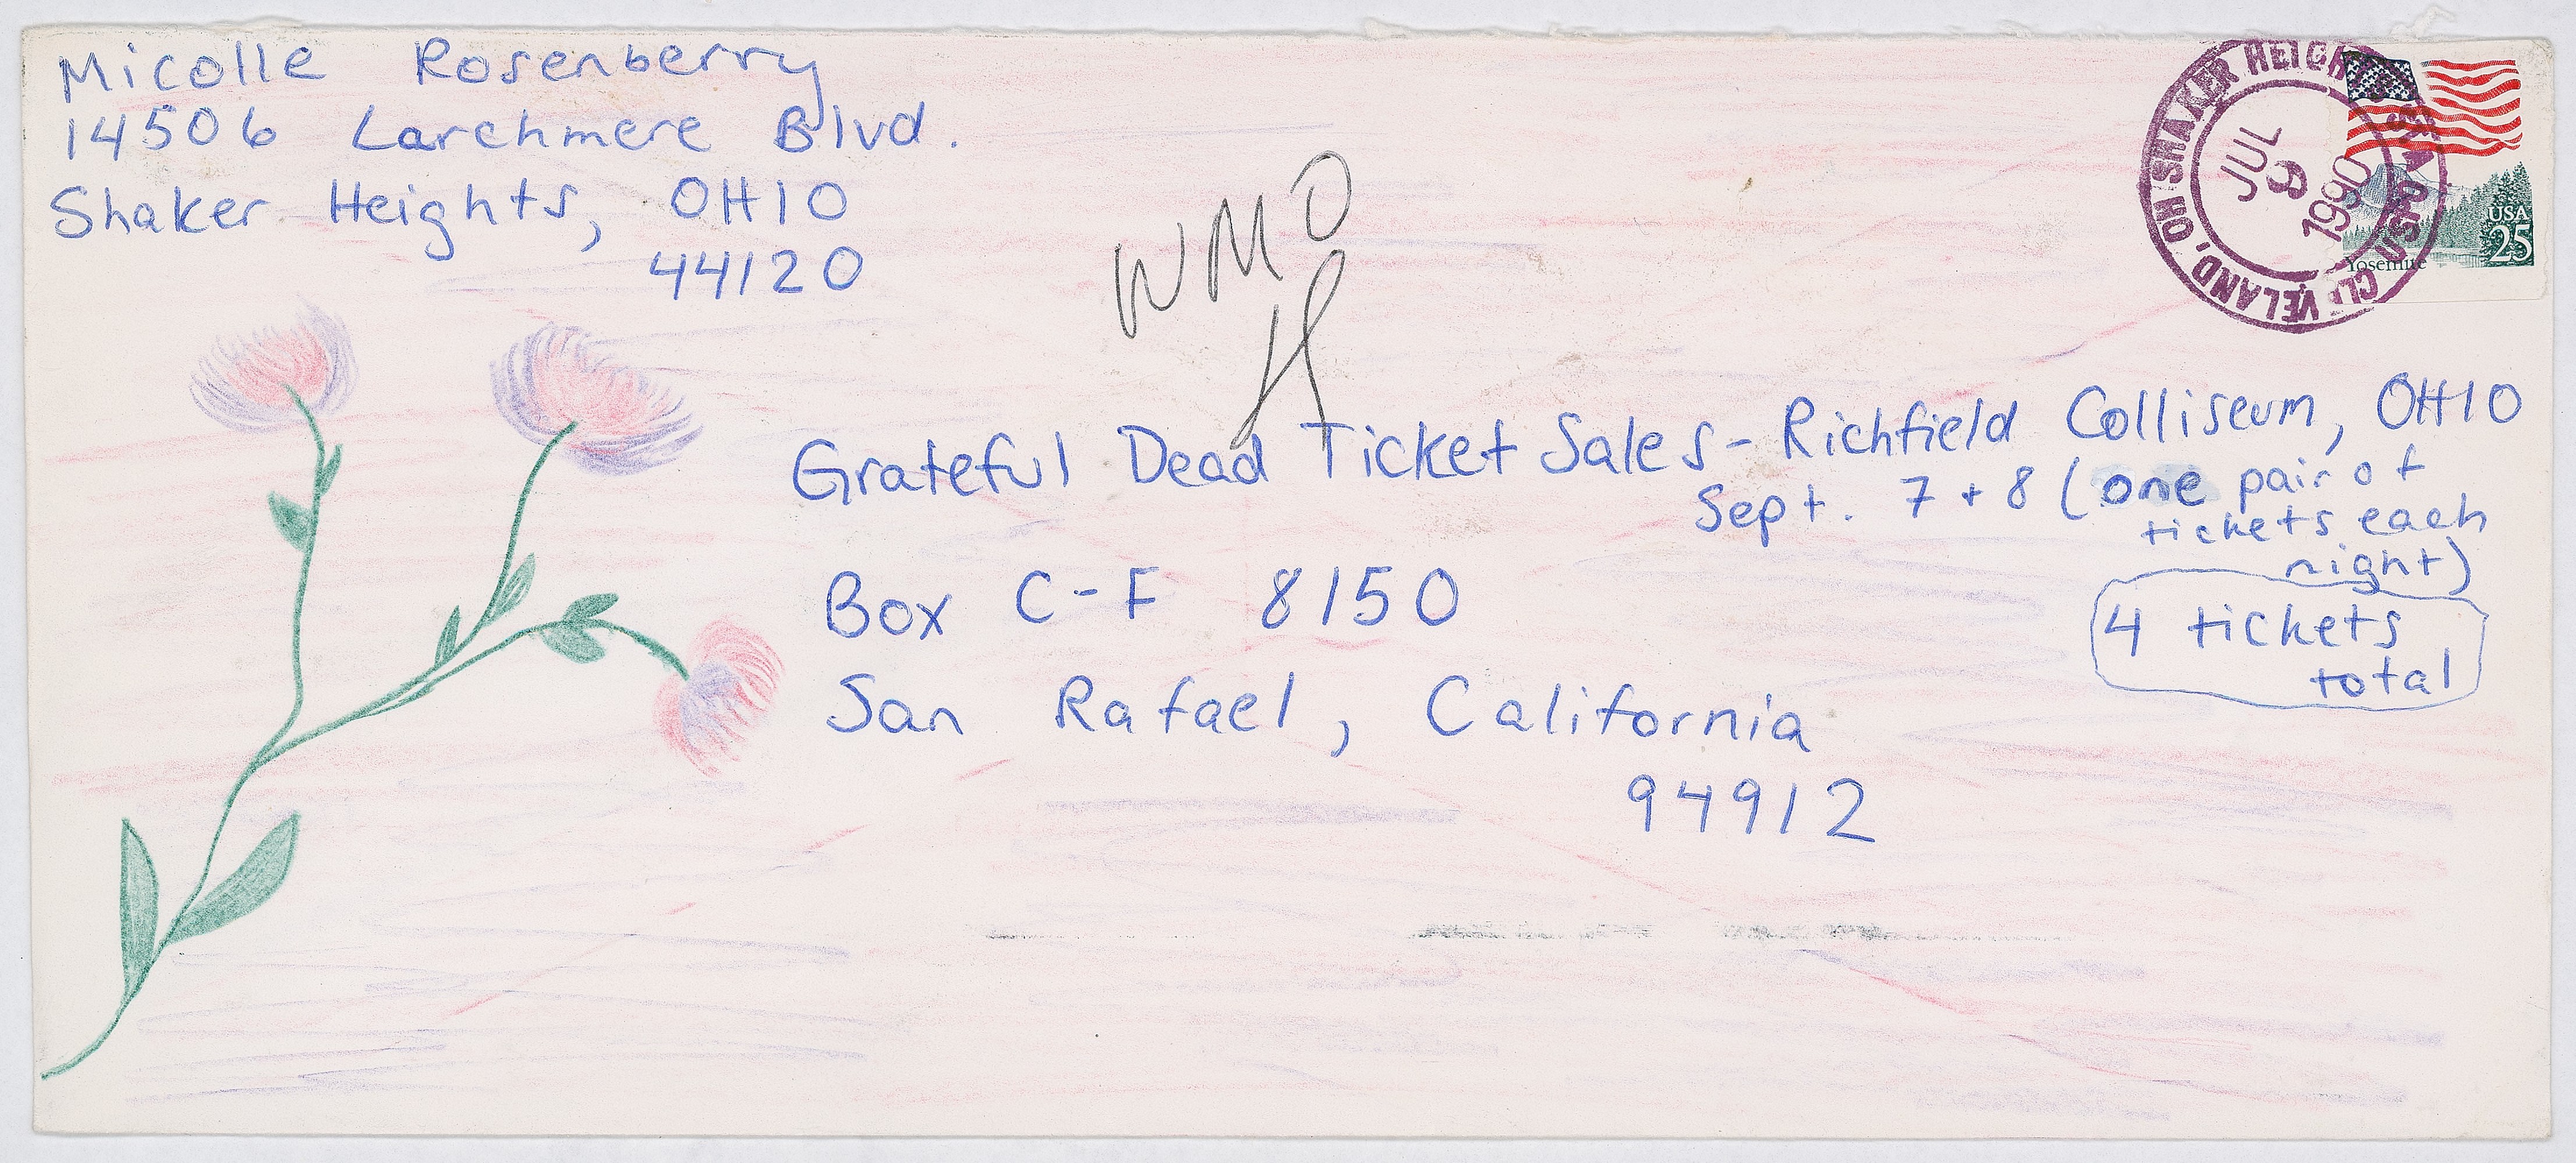 Micolle Rosenberry
14506 Larchmere Blvd.
Shaker Heights, OHIO
44120
WMO
CLEVELAND, OH SHAKER HEIGHTS
JUL
9
1990
USPO
USA
25
Yosemite
Grateful Dead Ticket Sales - Richfield Colliseum, OHIO
Sept. 7 + 8 (one pair of
tickets each
night)
4 tickets
total
Box C-F 8150
San Rafael, California
94912